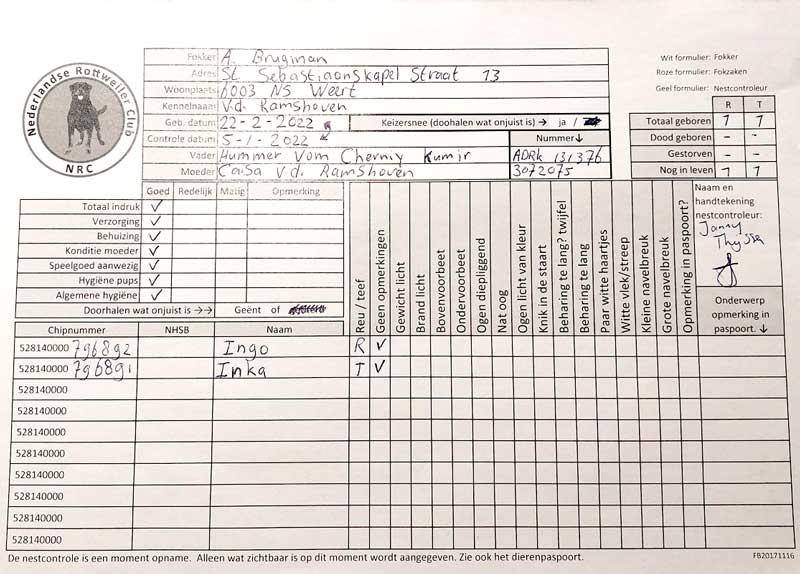 Nederlandse Rottweiler Club
NRC
Fokker A. Brugman
Adres St. Sebastiaanskapel Straat 13
Woonplaats 6003 NS Weert
Kennelnaam V.d. Ramshoven
Geb. datum 22-2-2022 Keizersnee (doorhalen wat onjuist is) → ja /
Controle datum 5-1-2022 Nummer↓
Vader Hummer vom Cherniy Kumir ADRK 131376
Moeder Caisa v.d. Ramshoven 3072075
Wit formulier: Fokker
Roze formulier: Fokzaken
Geel formulier: Nestcontroleur
R T
Totaal geboren 1 1
Dood geboren - -
Gestorven - -
Nog in leven 1 1
Goed Redelijk Matig Opmerking
Totaal indruk ✓
Verzorging ✓
Behuizing ✓
Konditie moeder ✓
Speelgoed aanwezig ✓
Hygiëne pups ✓
Algemene hygiëne ✓
Doorhalen wat onjuist is →→ Geënt of
Naam en
handtekening
nestcontroleur:
Janny
Thyssen
Onderwerp
opmerking in
paspoort. ↓
Chipnummer NHSB Naam
Reu / teef
Geen opmerkingen
Gewicht licht
Brand licht
Bovenvoorbeet
Ondervoorbeet
Ogen diepliggend
Nat oog
Ogen licht van kleur
Knik in de staart
Beharing te lang? twijfel
Beharing te lang
Paar witte haartjes
Witte vlek/streep
Kleine navelbreuk
Grote navelbreuk
Opmerking in paspoort?
528140000 796892 Ingo R ✓
528140000 796891 Inka T ✓
528140000
528140000
528140000
528140000
528140000
528140000
528140000
528140000
De nestcontrole is een moment opname. Alleen wat zichtbaar is op dit moment wordt aangegeven. Zie ook het dierenpaspoort.
FB20171116